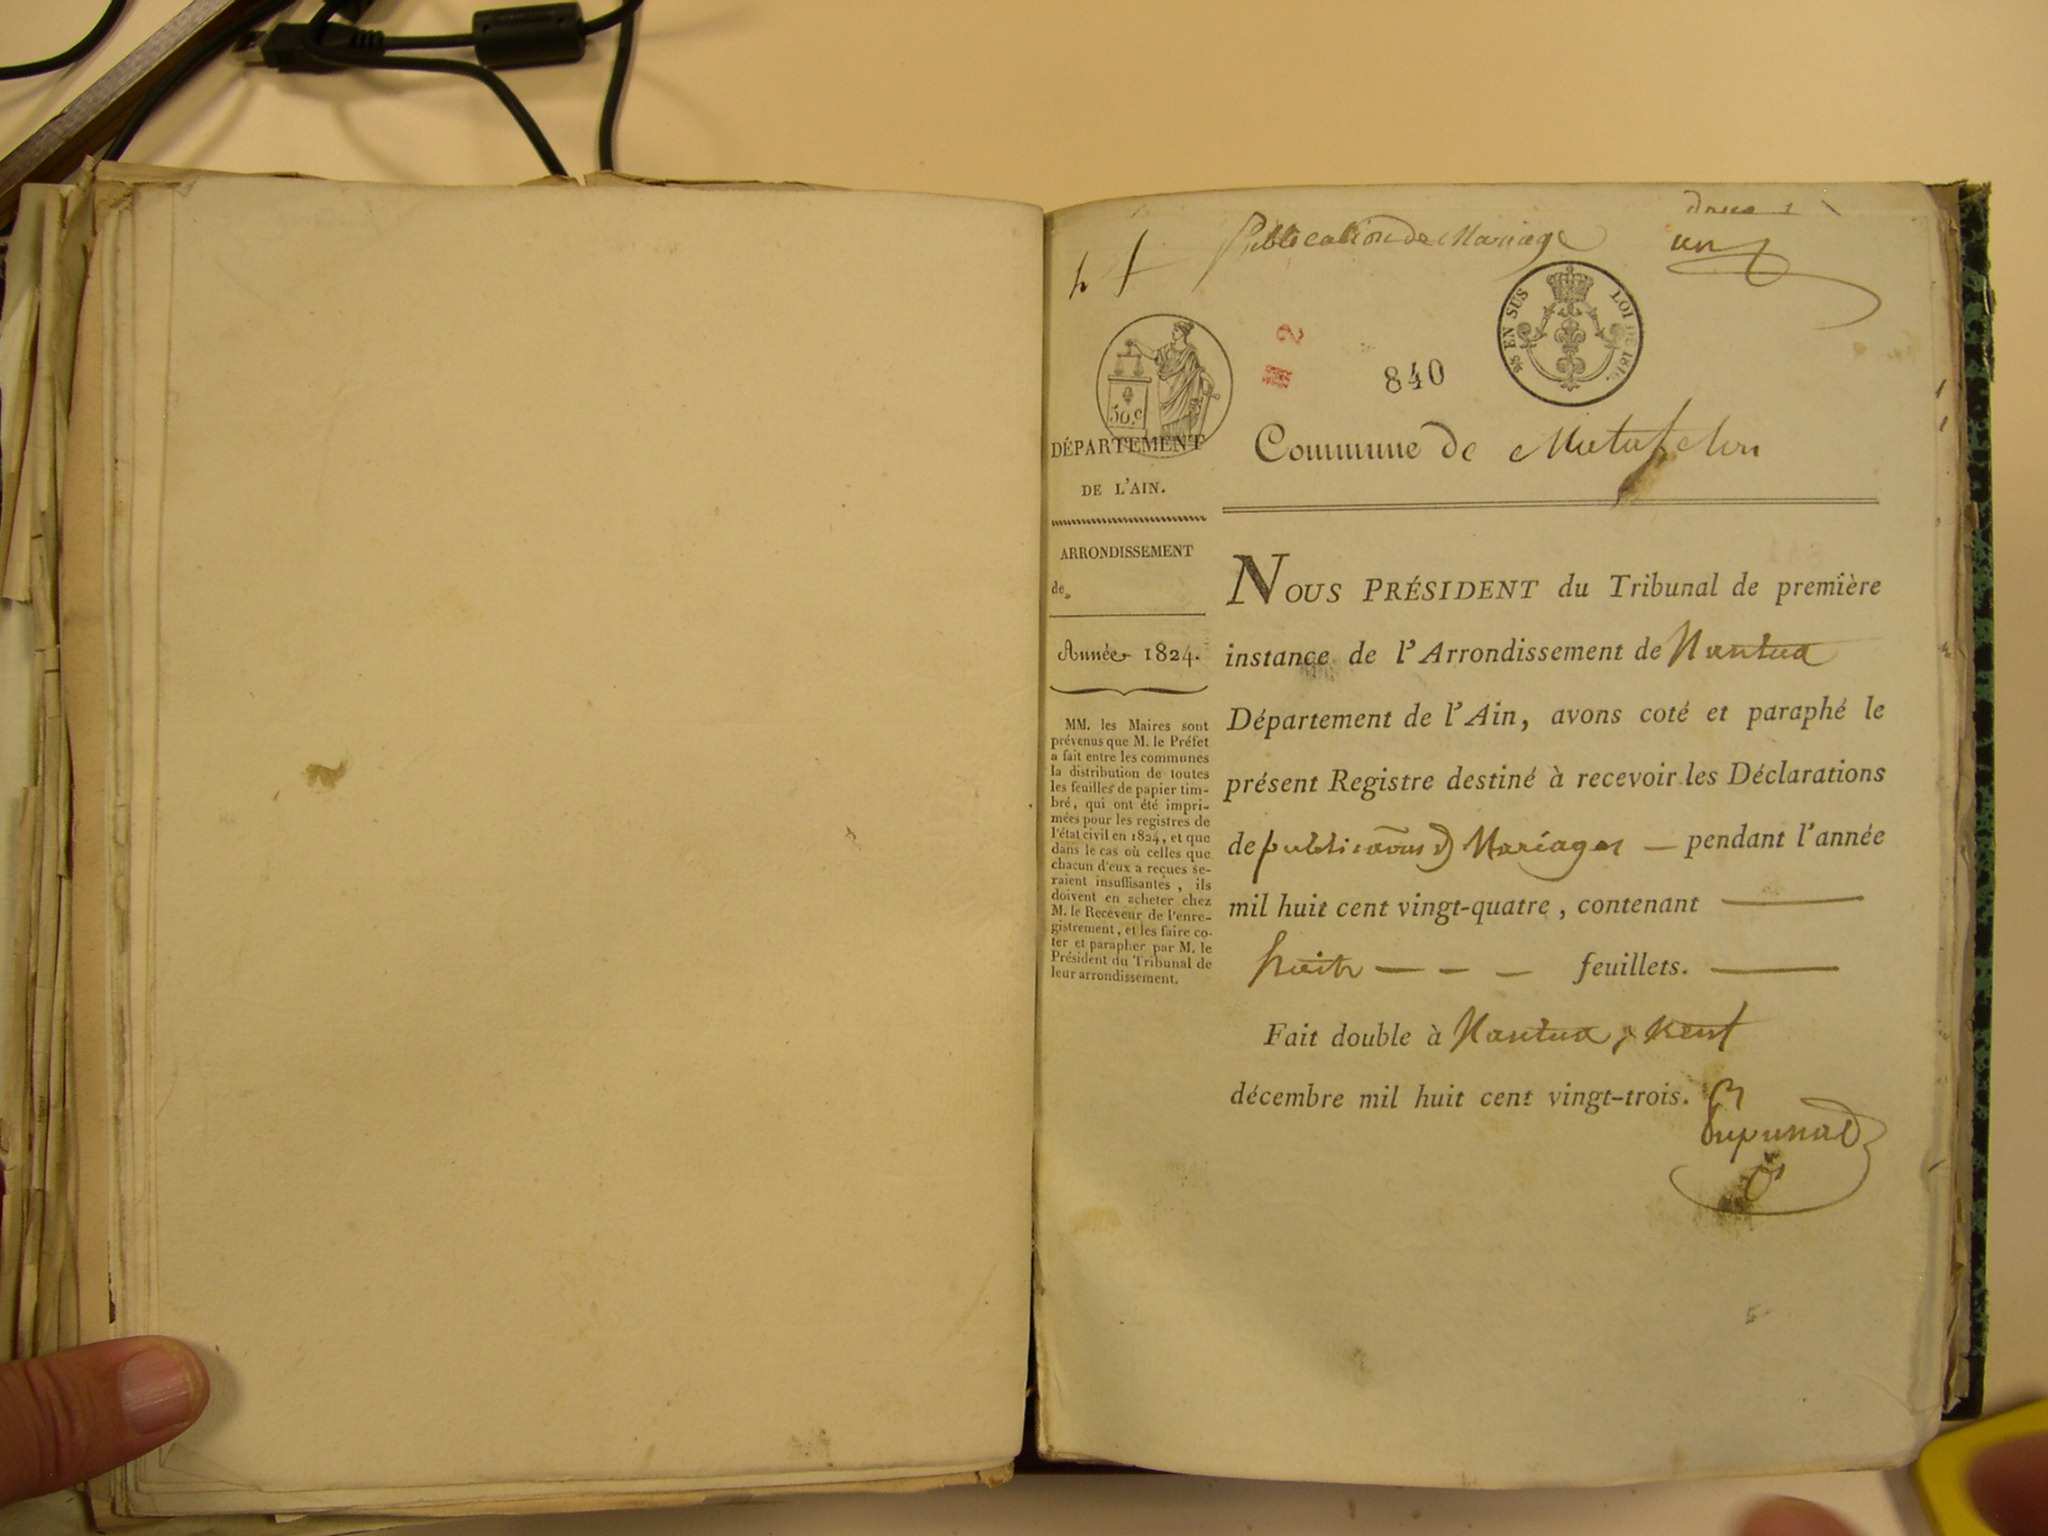 Publication de Mariage
un
50 c
⅖ EN SUS LOI DE 1816.
2
840
DÉPARTEMENT
DE L'AIN.
Commune de Matafelon
ARRONDISSEMENT
de
Année 1824.
MM. les Maires sont
prévenus que M. le Préfet
a fait entre les communes
la distribution de toutes
les feuilles de papier tim-
bré, qui ont été impri-
mées pour les registres de
l'état civil en 1824, et que
dans le cas où celles que
chacun d'eux a reçues se-
raient insuffisantes, ils
doivent en acheter chez
M. le Receveur de l'enre-
gistrement, et les faire co-
ter et parapher par M. le
Président du Tribunal de
leur arrondissement.
NOUS PRÉSIDENT du Tribunal de première
instance de l'Arrondissement de Nantua
Département de l'Ain, avons coté et paraphé le
présent Registre destiné à recevoir les Déclarations
de publications de Mariages — pendant l'année
mil huit cent vingt-quatre, contenant —
huit — — — feuillets. —
Fait double à Nantua, neuf
décembre mil huit cent vingt-trois.